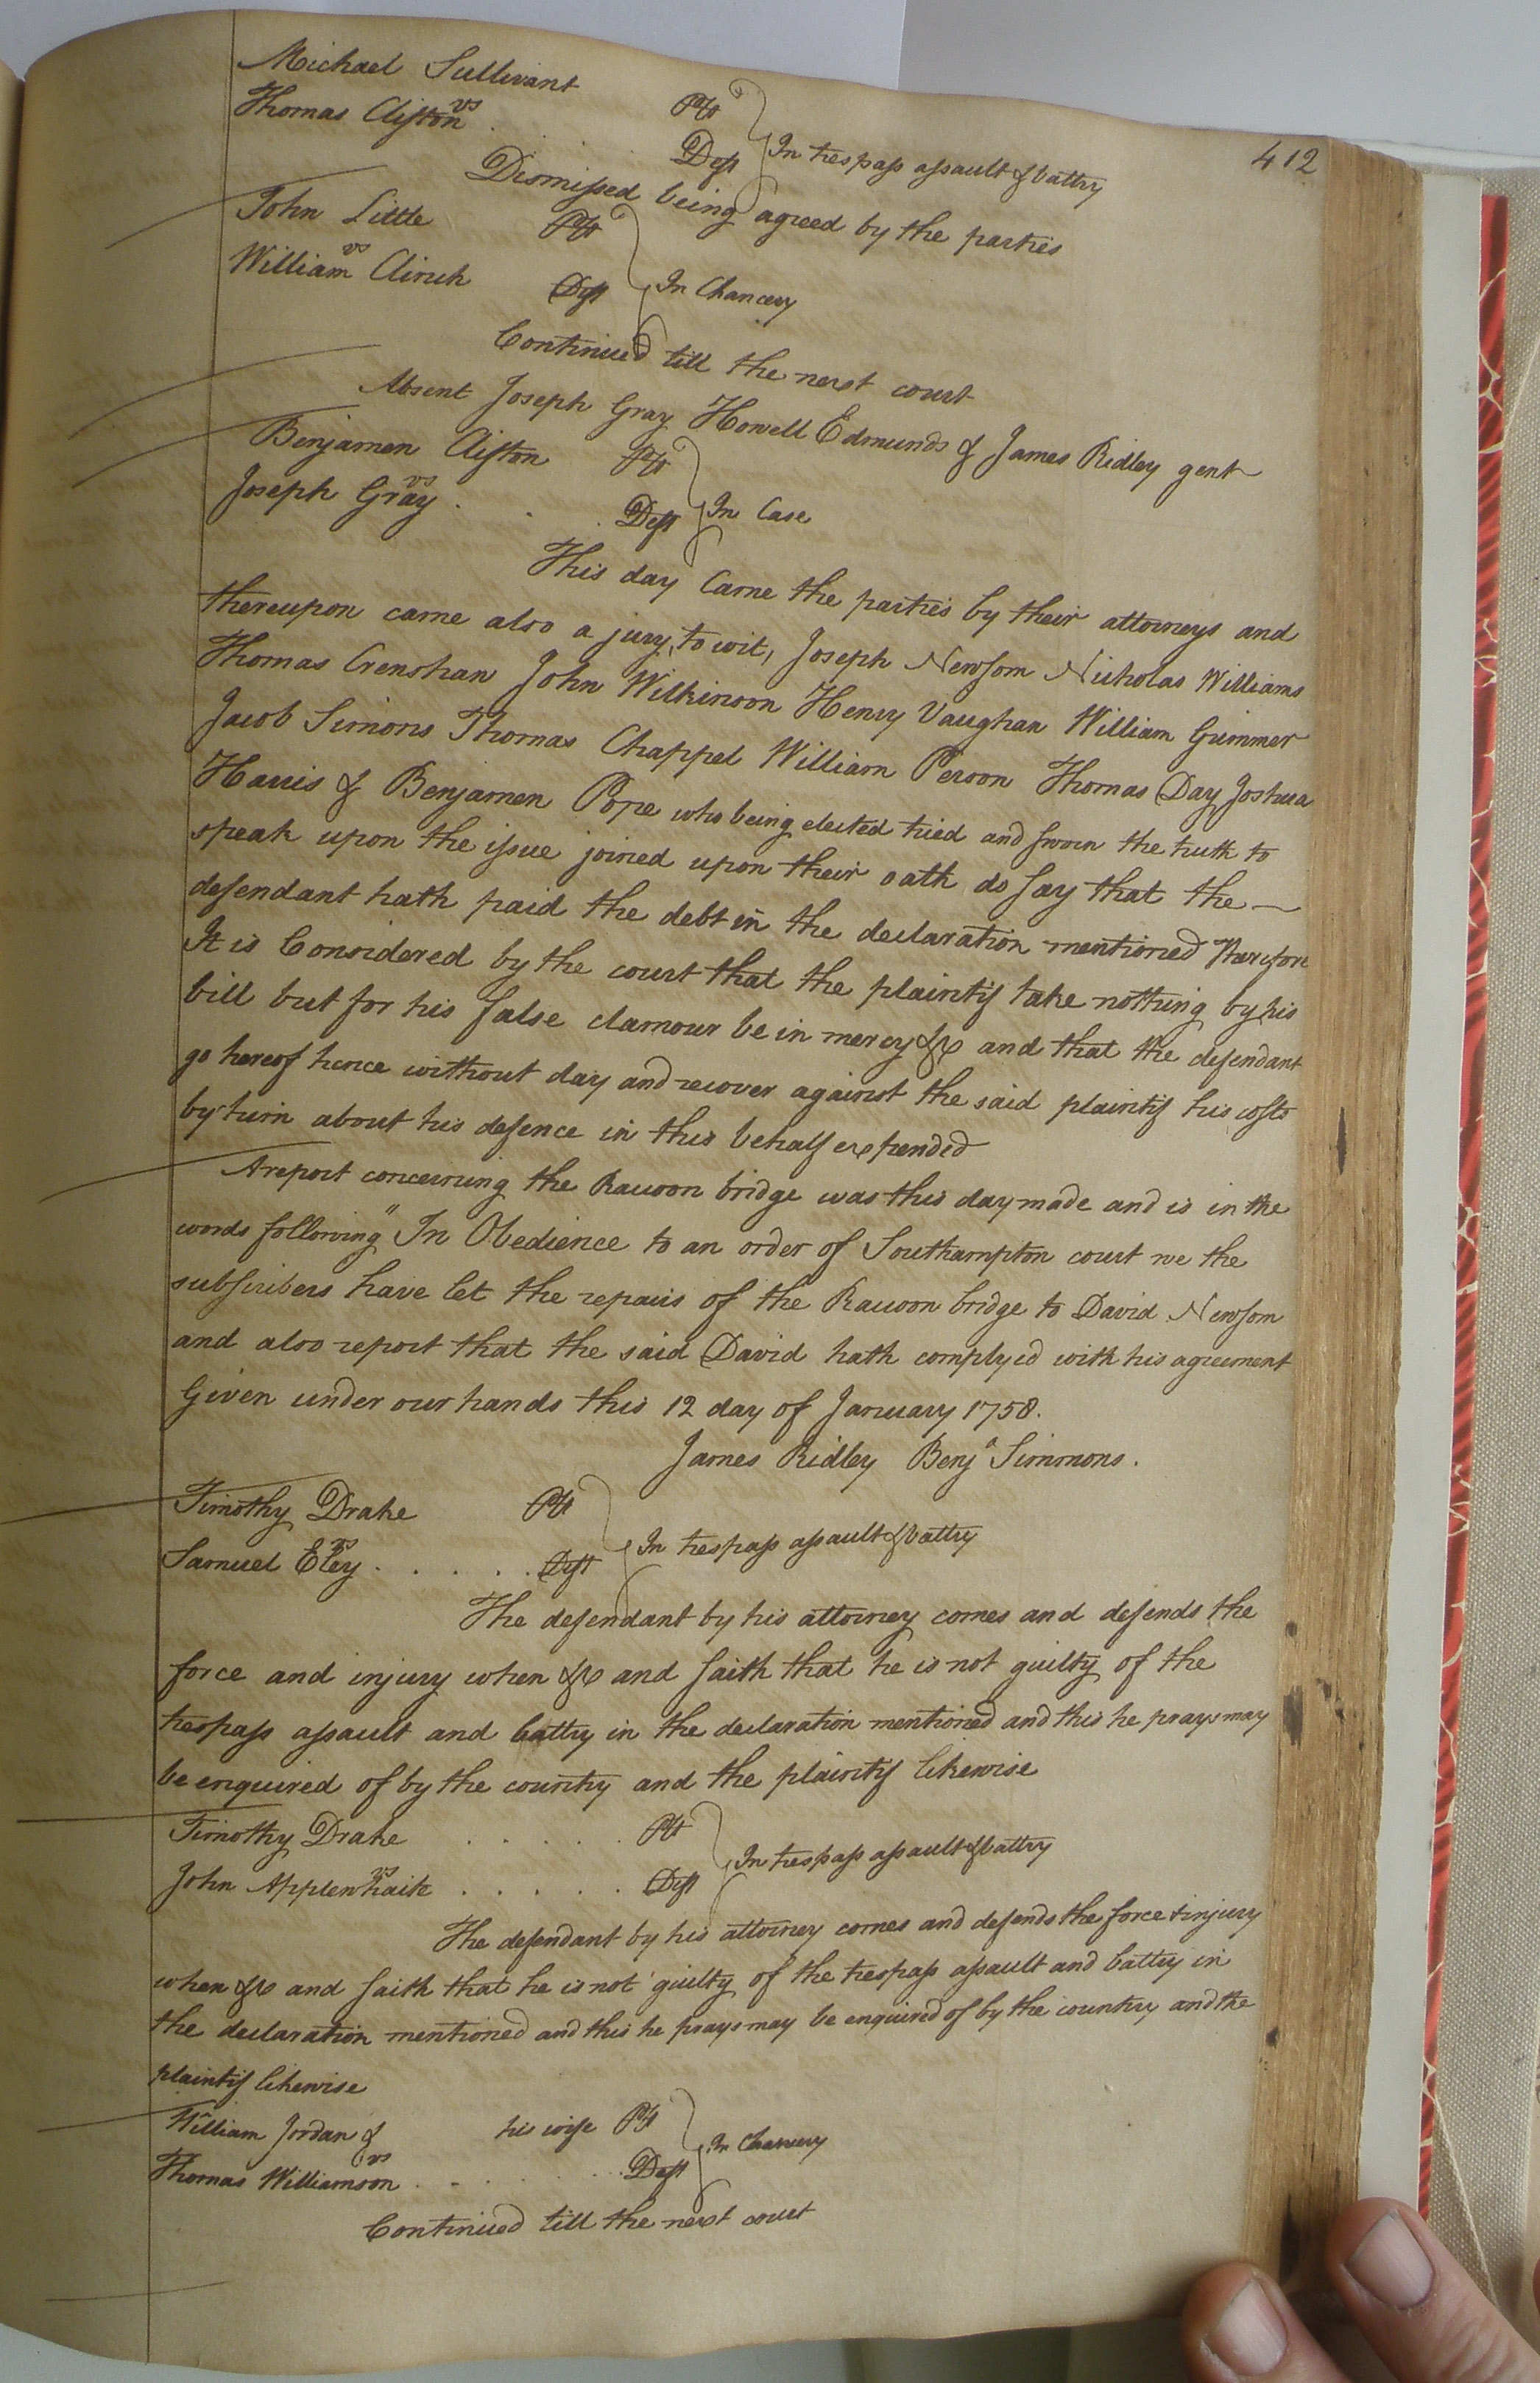 412
Michael Sullivant Plt
vs
Thomas Clifton Deft In trespass assault & battry
Dismissed being agreed by the parties
John Little Plt
vs
William Clinch Deft In Chancery
Continued till the next court
Absent Joseph Gray Howell Edmunds & James Ridley gent
Benjamen Clifton Plt
vs
Joseph Gray . . . Deft In Case
This day Came the parties by their attorneys and
thereupon came also a jury, to wit, Joseph Newsom Nicholas Williams
Thomas Crenshan John Wilkinson Henry Vaughan William Grimmer
Jacob Simons Thomas Chappel William Person Thomas Day Joshua
Harris & Benjamen Pope who being elected tried and sworn the truth to
speak upon the issue joined upon their oath do say that the —
defendant hath paid the debt in the declaration mentioned Therefore
It is Considered by the court that the plaintif take nothing by his
bill but for his false clamour be in mercy &c and that the defendant
go hereof hence without day and recover against the said plaintif his costs
by him about his defence in this behalf expended
A report concerning the Racoon bridge was this day made and is in the
words following " In Obedience to an order of Southampton court we the
subscribers have let the repairs of the Racoon bridge to David Newsom
and also report that the said David hath complyed with his agreement
Given under our hands this 12 day of January 1758.
James Ridley Benja Simmons.
Timothy Drake Plt
vs
Samuel Eley . . . . . Deft In trespass assault & battry
The defendant by his attorney comes and defends the
force and injury when &c and saith that he is not guilty of the
trespass assault and battry in the declaration mentioned and this he prays may
be enquired of by the country and the plaintif likewise
Timothy Drake . . . . . Plt
vs
John Applewhaite . . . . . Deft In trespass assault & battry
The defendant by his attorney comes and defends the force & injury
when &c and saith that he is not guilty of the trespass assault and battry in
the declaration mentioned and this he prays may be enquired of by the country and the
plaintif likewise
William Jordan & his wife Plt
vs
Thomas Williamson . . . . . Deft In Chancery
Continued till the next court